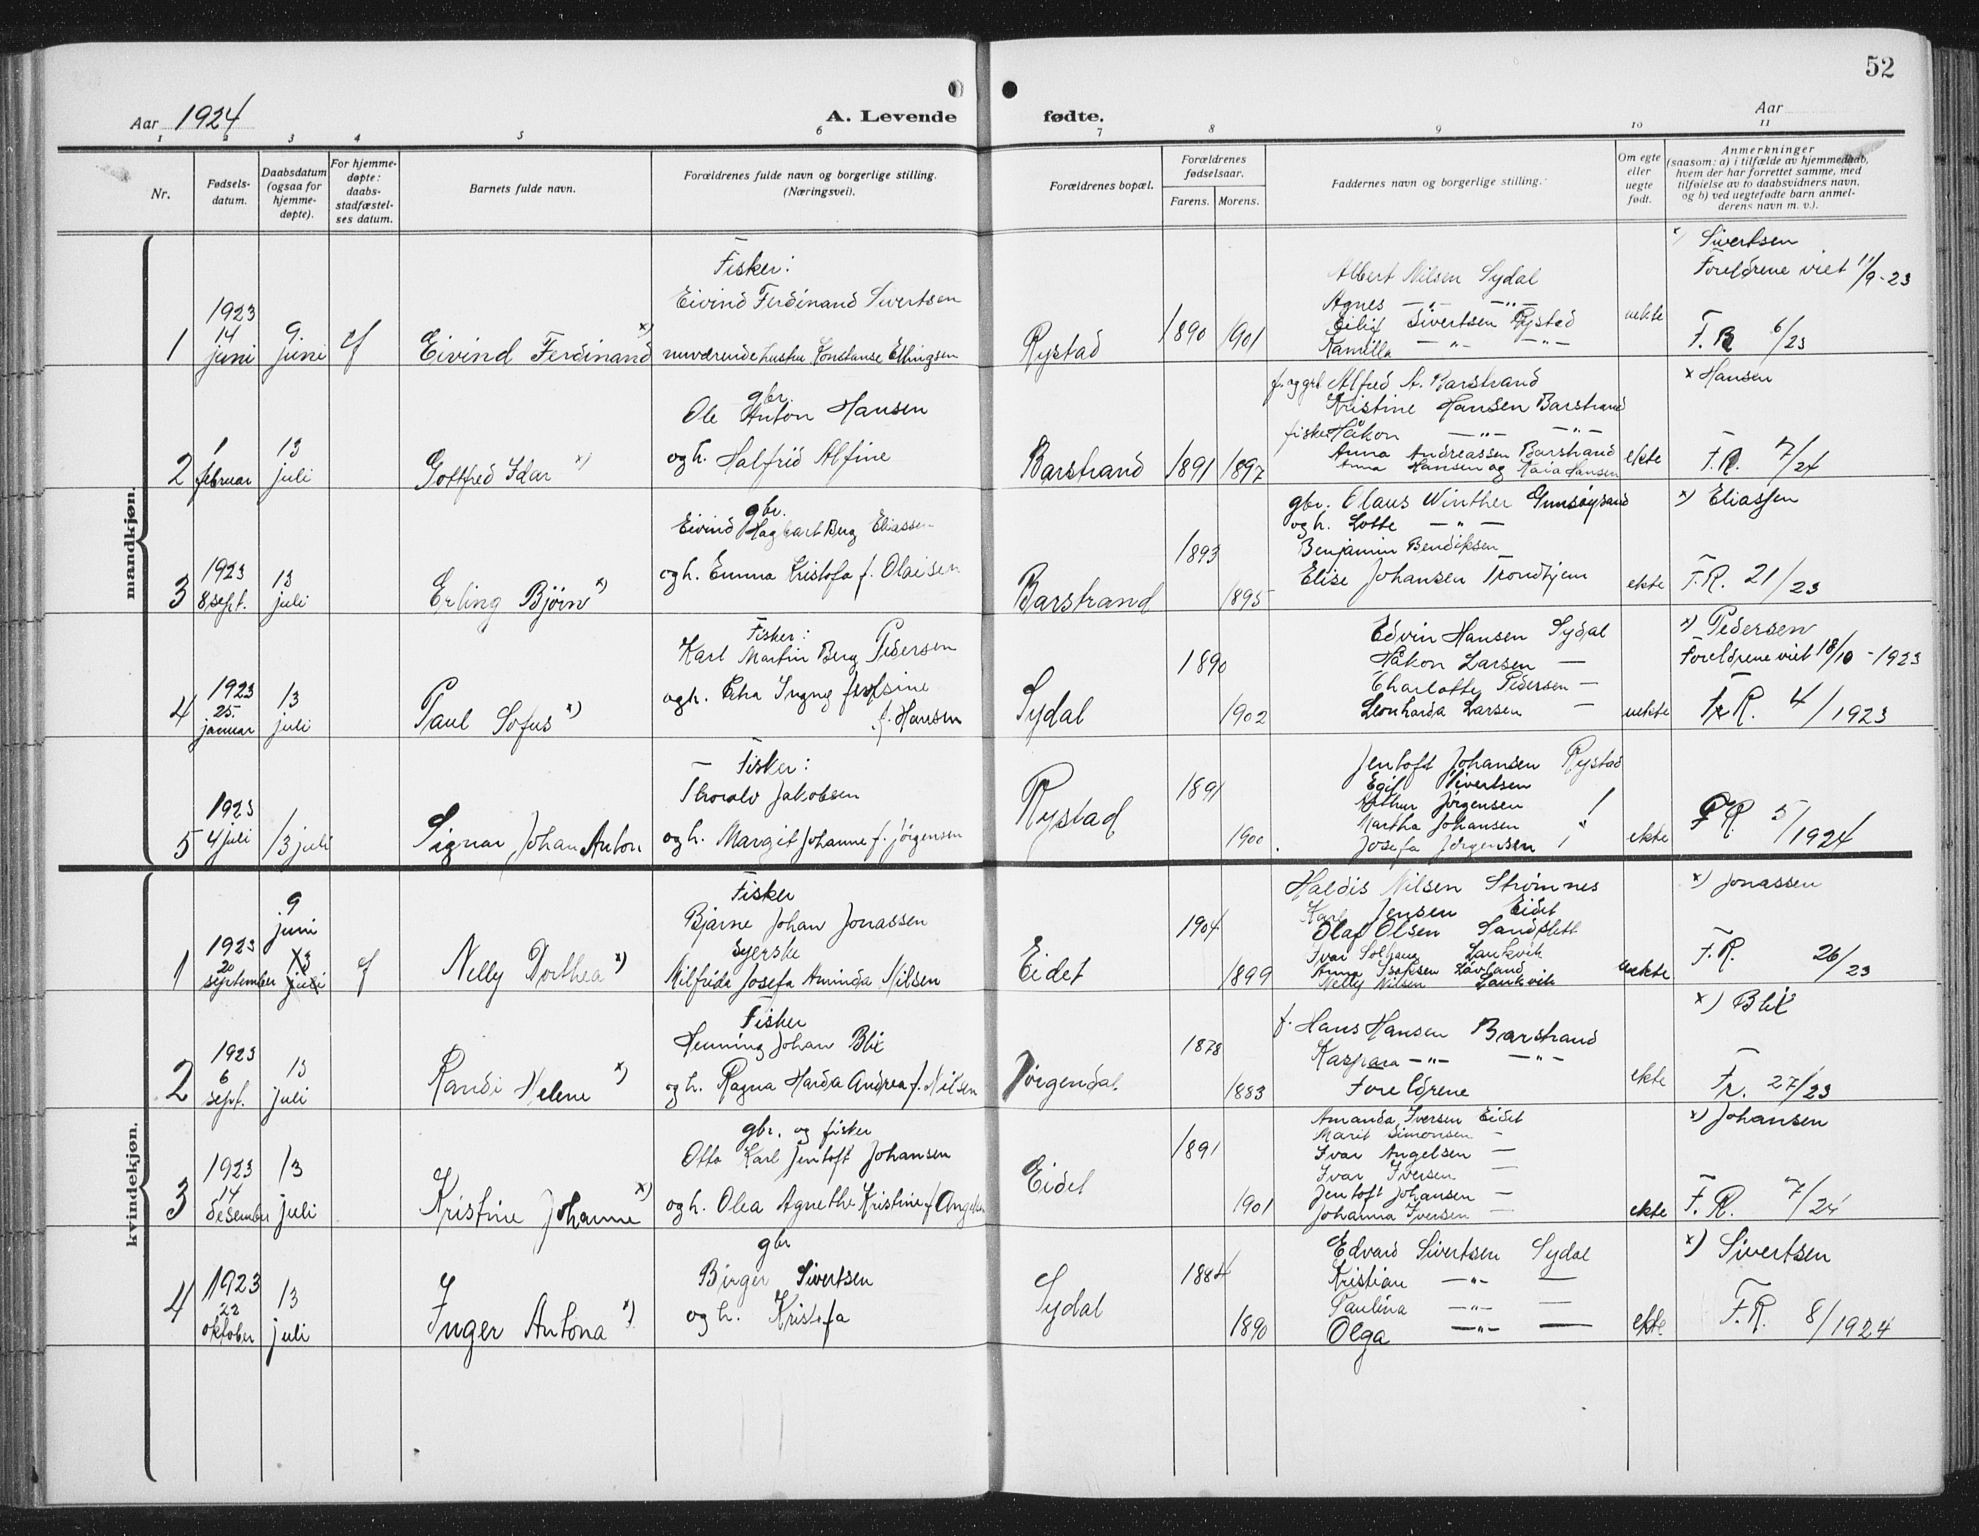 52
Aar 1924
A. Levende fødte.
Aar
1 2 3 4 5 6 7 8 9 10 11
Nr.
Fødsels-
datum.
Daabsdatum
(ogsaa for
hjemme-
døpte).
For hjemme-
døpte:
daabs-
stadfæstel-
ses datum.
Barnets fulde navn.
Forældrenes fulde navn og borgerlige stilling.
(Næringsvei).
Forældrenes bopæl.
Forældrenes
fødselsaar.
Farens. Morens.
Faddernes navn og borgerlige stilling.
Om egte
eller
uegte
født.
Anmerkninger
(saasom: a) i tilfælde av hjemmedaab,
hvem der har forrettet samme, med
tilføielse av to daabsvidners navn,
og b) ved uegtefødte barn anmel-
derens navn m. v.).
mandkjøn.
1
1923
14
juni
9
juni
Eivind Ferdinand x)
Fisker:
Eivind Ferdinand Sivertsen
nuværende hustru Konstanse Ellingsen
Rystad
1890 1901
Albert Nilsen Sydal
Agnes —„— —„—
Eilif Sivertsen Rystad
Kamilla —„— —„—
uekte
x) Sivertsen
Foreldrene viet 11/9-23
F.R. 6/23
2
1
februar
13
juli
Gottfred Idar x)
gbr.
Ole Anton Hansen
og h. Halfrid Alfine
Barstrand
1891 1897
f. og gbr. Alfred A. Barstrand
Kristine Hansen Barstrand
fisker Håkon —„— —„—
Anna Andreassen Barstrand
Anna Hansen og Kaia Hansen
ekte
x Hansen
F.R. 7/24
3
1923
8 sept.
13
juli
Erling Bjørn x)
gbr.
Eivind Hagbart Berg Eliassen
og h. Emma Kristofa f. Olaisen
Barstrand
1893
1895
gbr. Olaus Winther Gimsøysand
og h. Lotte —„—
Benjamin Bendiksen
Elise Johansen Trondhjem
ekte
x) Eliassen
F.R. 21/23
4
1923
25.
januar
13
juli
Paul Sofus x)
Fisker:
Karl Martin Berg Pedersen
og h.
f. Hansen
Sydal
1890
1902
Edvin Hansen Sydal
Håkon Larsen —
Charlotte Pedersen —
Leonharda Larsen —
uekte
x) Pedersen
Foreldrene viet 18/10-1923
F.R. 4/1923
5
1923
4 juli
13 juli
Signar Johan Anton
Fisker:
Thoralv Jakobsen
og h. Margit Johanne f. Jørgensen
Rystad
1891
1900
Jentoft Johansen Rystad
Egil Sivertsen
Arthur Jørgensen
Martha Johansen
Josefa Jørgensen
ekte
F.R. 5/1924
kvindekjøn.
1
1923
20
september
9
juni
13
juli
Nelly Dorthea x)
Fisker
Bjarne Johan Jonassen
Syerske
Milfrida Josefa Aminda Nilsen
Eidet
1904
1899
Haldis Nilsen Strømnes
Karl Jensen Eidet
Olaf Olsen Sandslett
Ivar Solhaug Laukvik
Anna Isaksen Løvland
Nelly Nilsen Laukvik
uekte
x) Jonassen
F.R. 26/23
2
1923
6
sept.
13
juli
Randi Helene x)
Fisker
Henning Johan Blix
og h. Ragna Harda Andrea f. Nilsen
Jørgendal
1878
1883
f. Hans Hansen Barstrand
Kaspara —„— —„—
Foreldrene
ekte
x) Blix
Fr. 27/23
3
1923
14
desember
13
juli
Kristine Johanne x)
gbr. og fisker
Otto Karl Jentoft Johansen
og h. Olea Agnethe Kristine f. Angelsen
Eidet
1891
1901
Amanda Iversen Eidet
Marit Simonsen —
Ivar Angelsen —
Ivar Iversen —
Jentoft Johansen —
Johanna Iversen —
ekte
x) Johansen
F.R. 7/24
4
1923
22
oktober
13
juli
Inger Antona x)
gbr
Birger Sivertsen
og h. Kristofa
Sydal
1884
1890
Edvard Sivertsen Sydal
Kristian —„— —
Paulina —„— —
Olga —„— —
ekte
x) Sivertsen
F.R. 8/1924